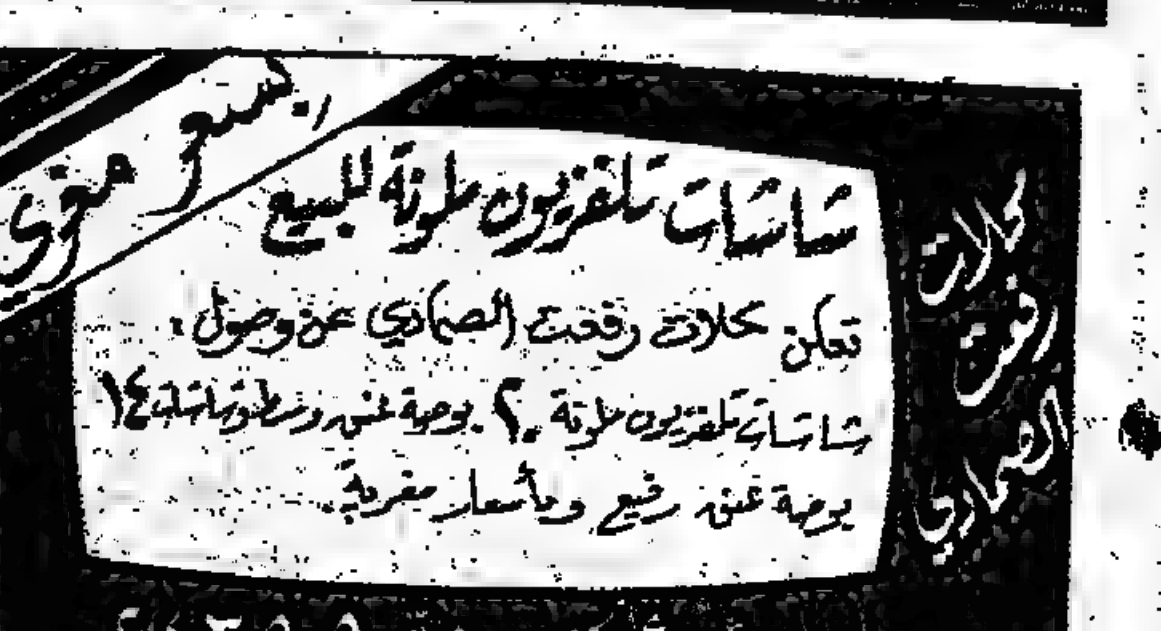 بسعر مغري
شاشات تلفزيون ملونة للبيع
تعلن محلات رفعت الصمادي عن وصول
شاشات تلفزيون ملونة ٢٠ بوصة عنق وسط وشاشات ١٤
بوصة عنق رفيع وبأسعار مغرية.
محلات
رفعت
الصمادي